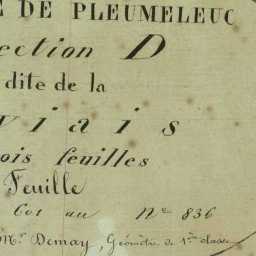 E DE PLEUMELEUC
ection D
dite de la
viais
ois feuilles
Feuille
Cot au Nº 836
Mr Demay, Géomètre de 1re classe